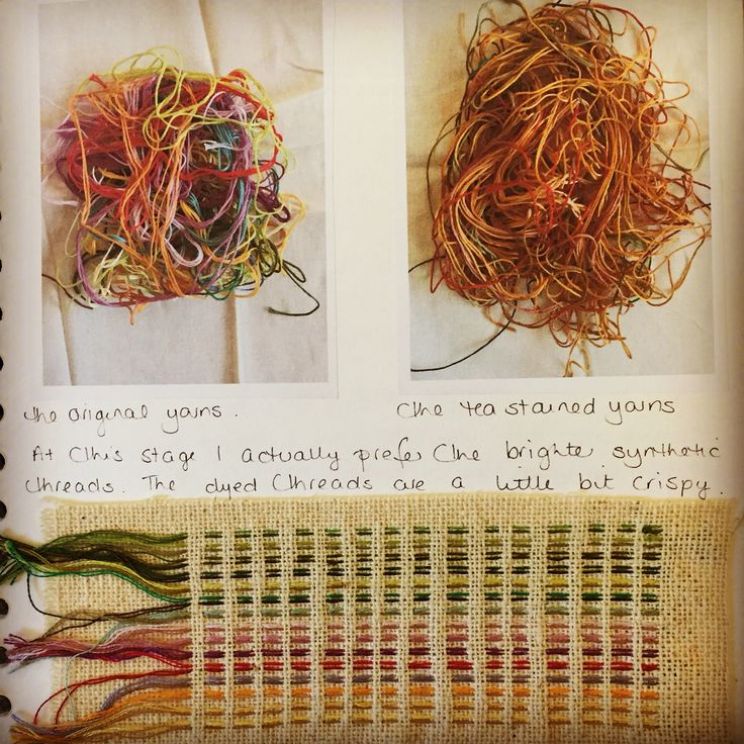 The original yarns.
The tea stained yarns
At this stage I actually prefer the brighter synthetic
threads. The dyed threads are a little bit crispy.